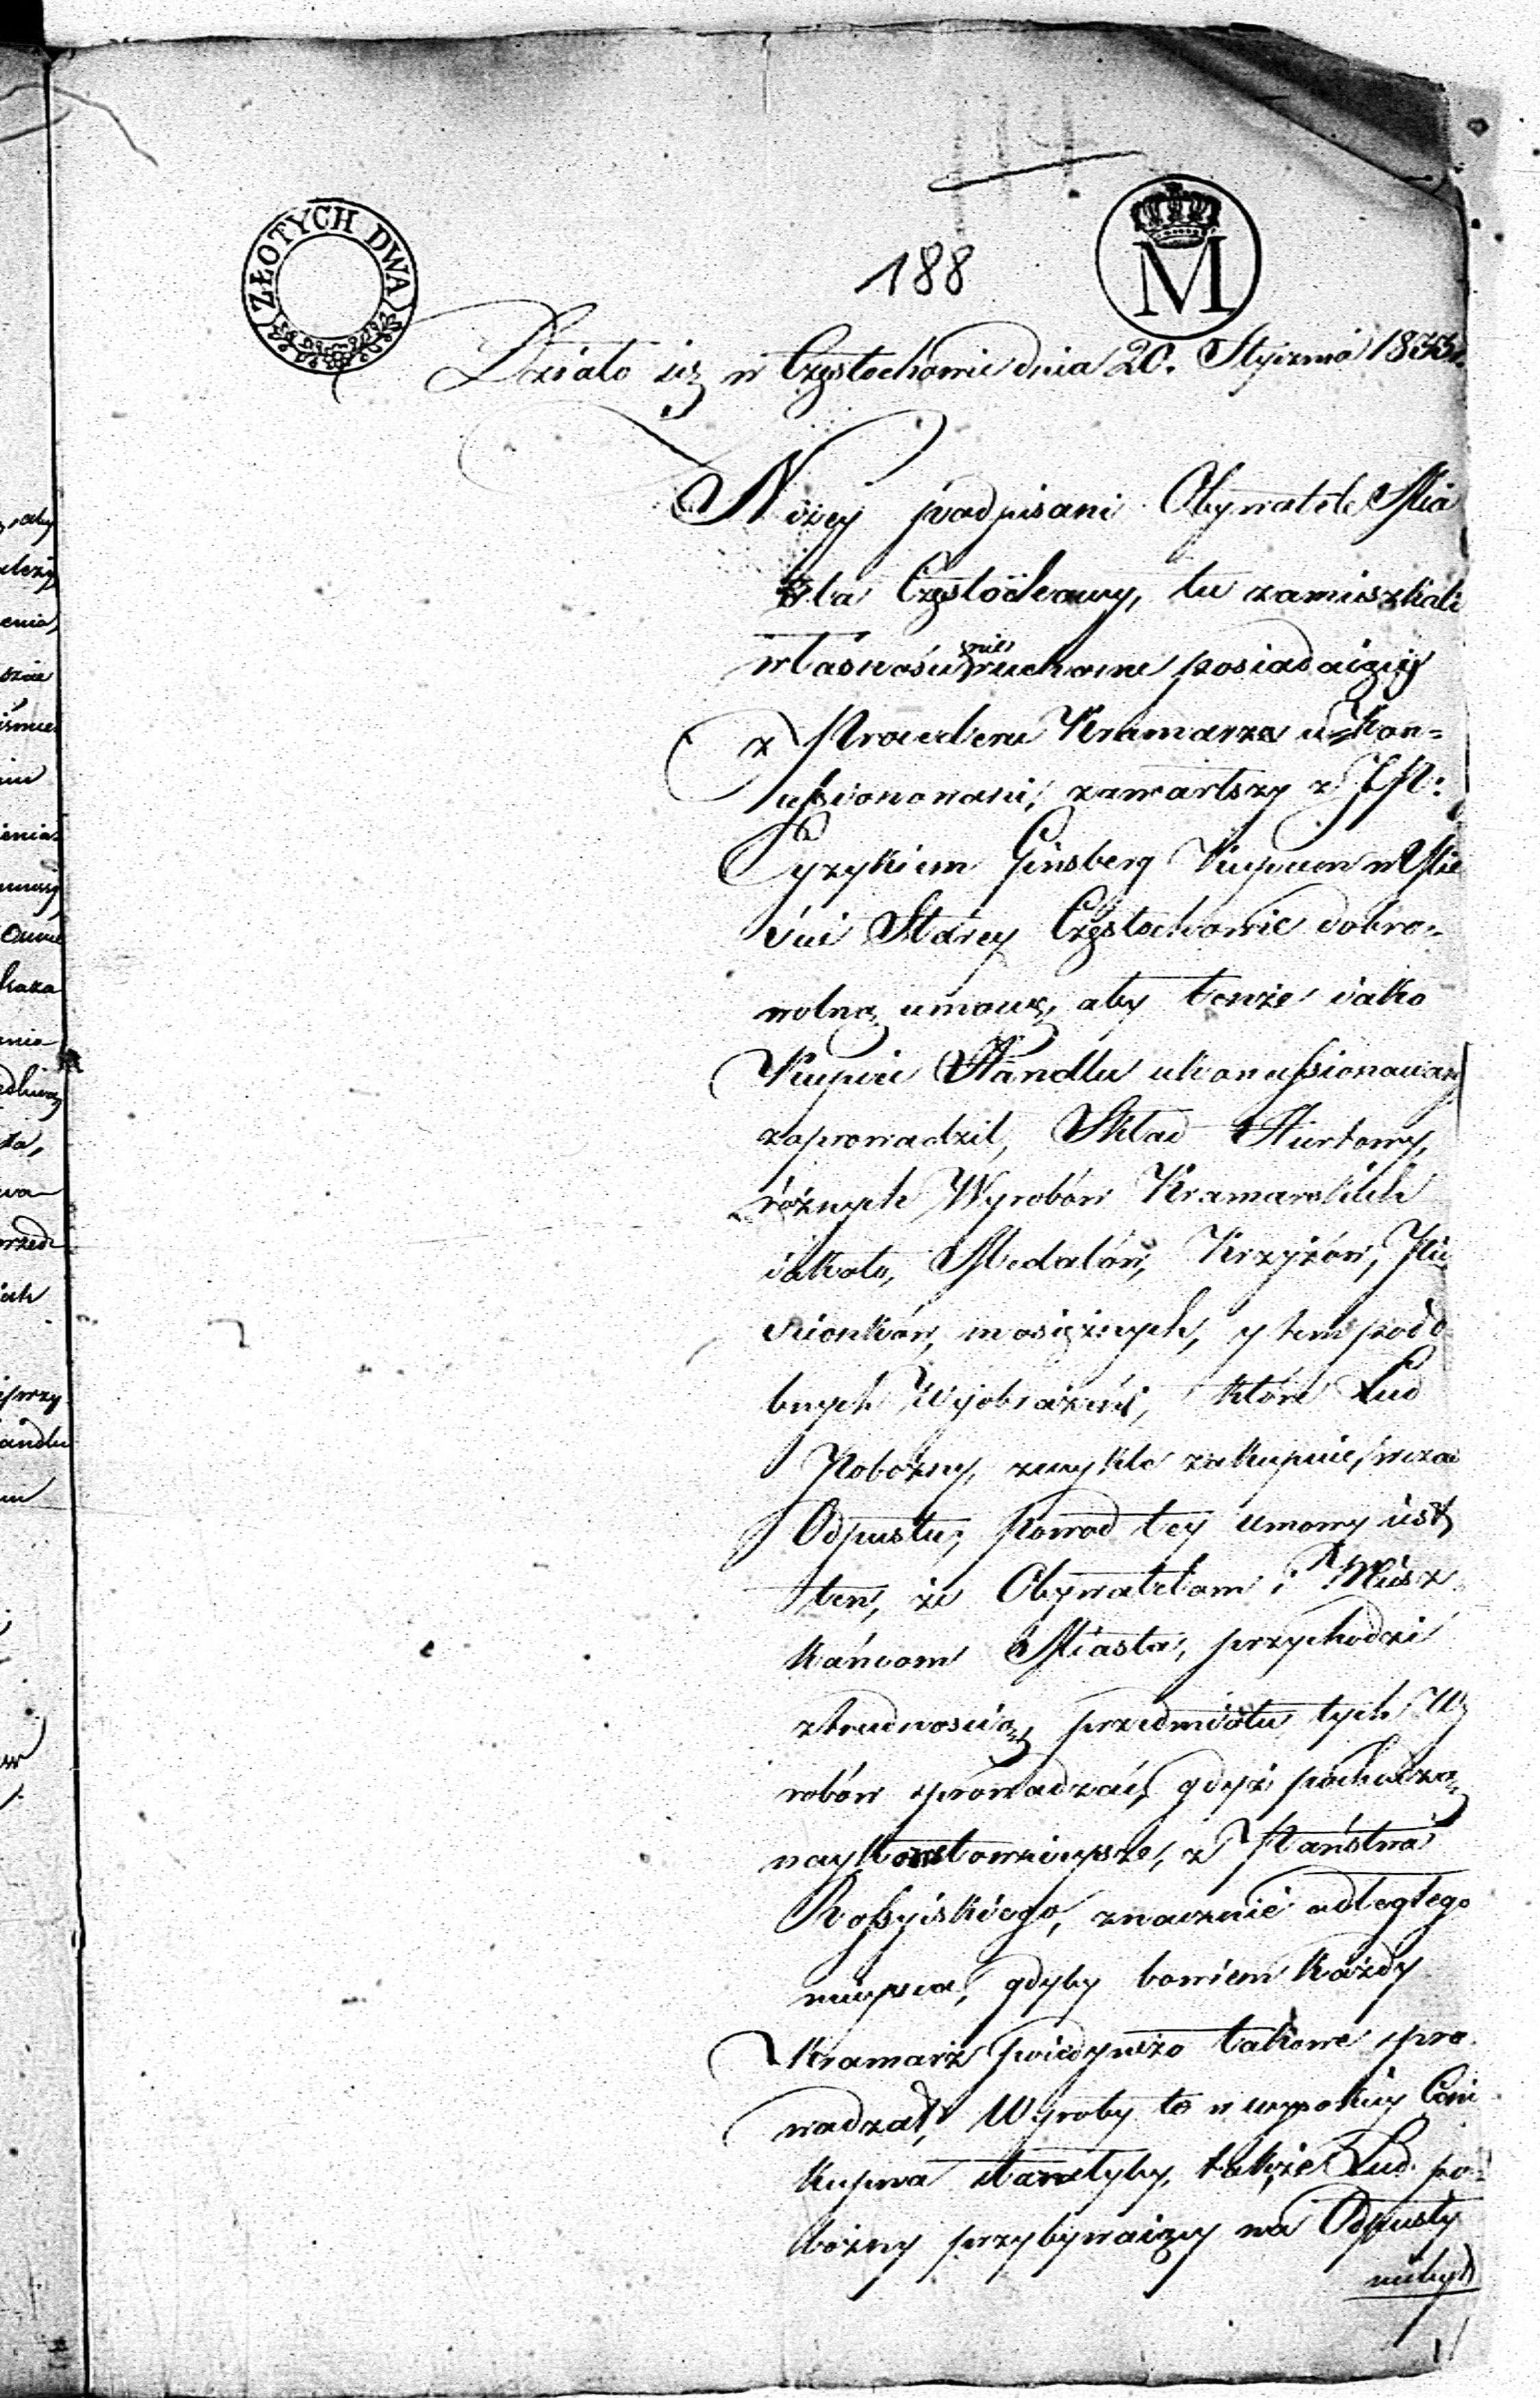 188
ZŁOTYCH DWA
M
Działo się w Częstochowie dnia 20. Stycznia 1833.
Niżey podpisani Obywatele Mia
sta Częstochowy, tu zamieszkali
własności nieruchome posiadaiący
z Procederu Kramarza ukon-
ces̄ionowani, zawartszy z JP:
Ginsberg Kupcem w Mie
ście Starey Częstochowie dobro-
wolną umowę, aby tenże iako
Kupiec Handlu ukonces̄ionowany
zaprowadził, Skład Hurtowy,
różnych Wyrobów Kramarskich
iakoto, Medalów, Krzyżów, Pie
rścionków, mosiężnych, y tem podo
bnych Wyobrażeń, które Lud
Pobożny, zwykle zakupuie, wczas
Odpustu; powod tey umowy iest
ten, że Obywatelom i Miesz-
kańcom Miasta, przychodzi
ztrudnością, przedmiotu tych Wy
robów sprowadzać, gdyż pochodzą
naykosztownieysze, z Państwa
Ros̄yiskiego, znacznie odległego
mieysca, gdyby bowiem każdy
Kramarz poiedynczo takowe spro
wadzał, Wyroby te w wysokiey Cenie
kupna stanęłyby, także Lud po-
bożny przybywaiący na Odpusty
niebył